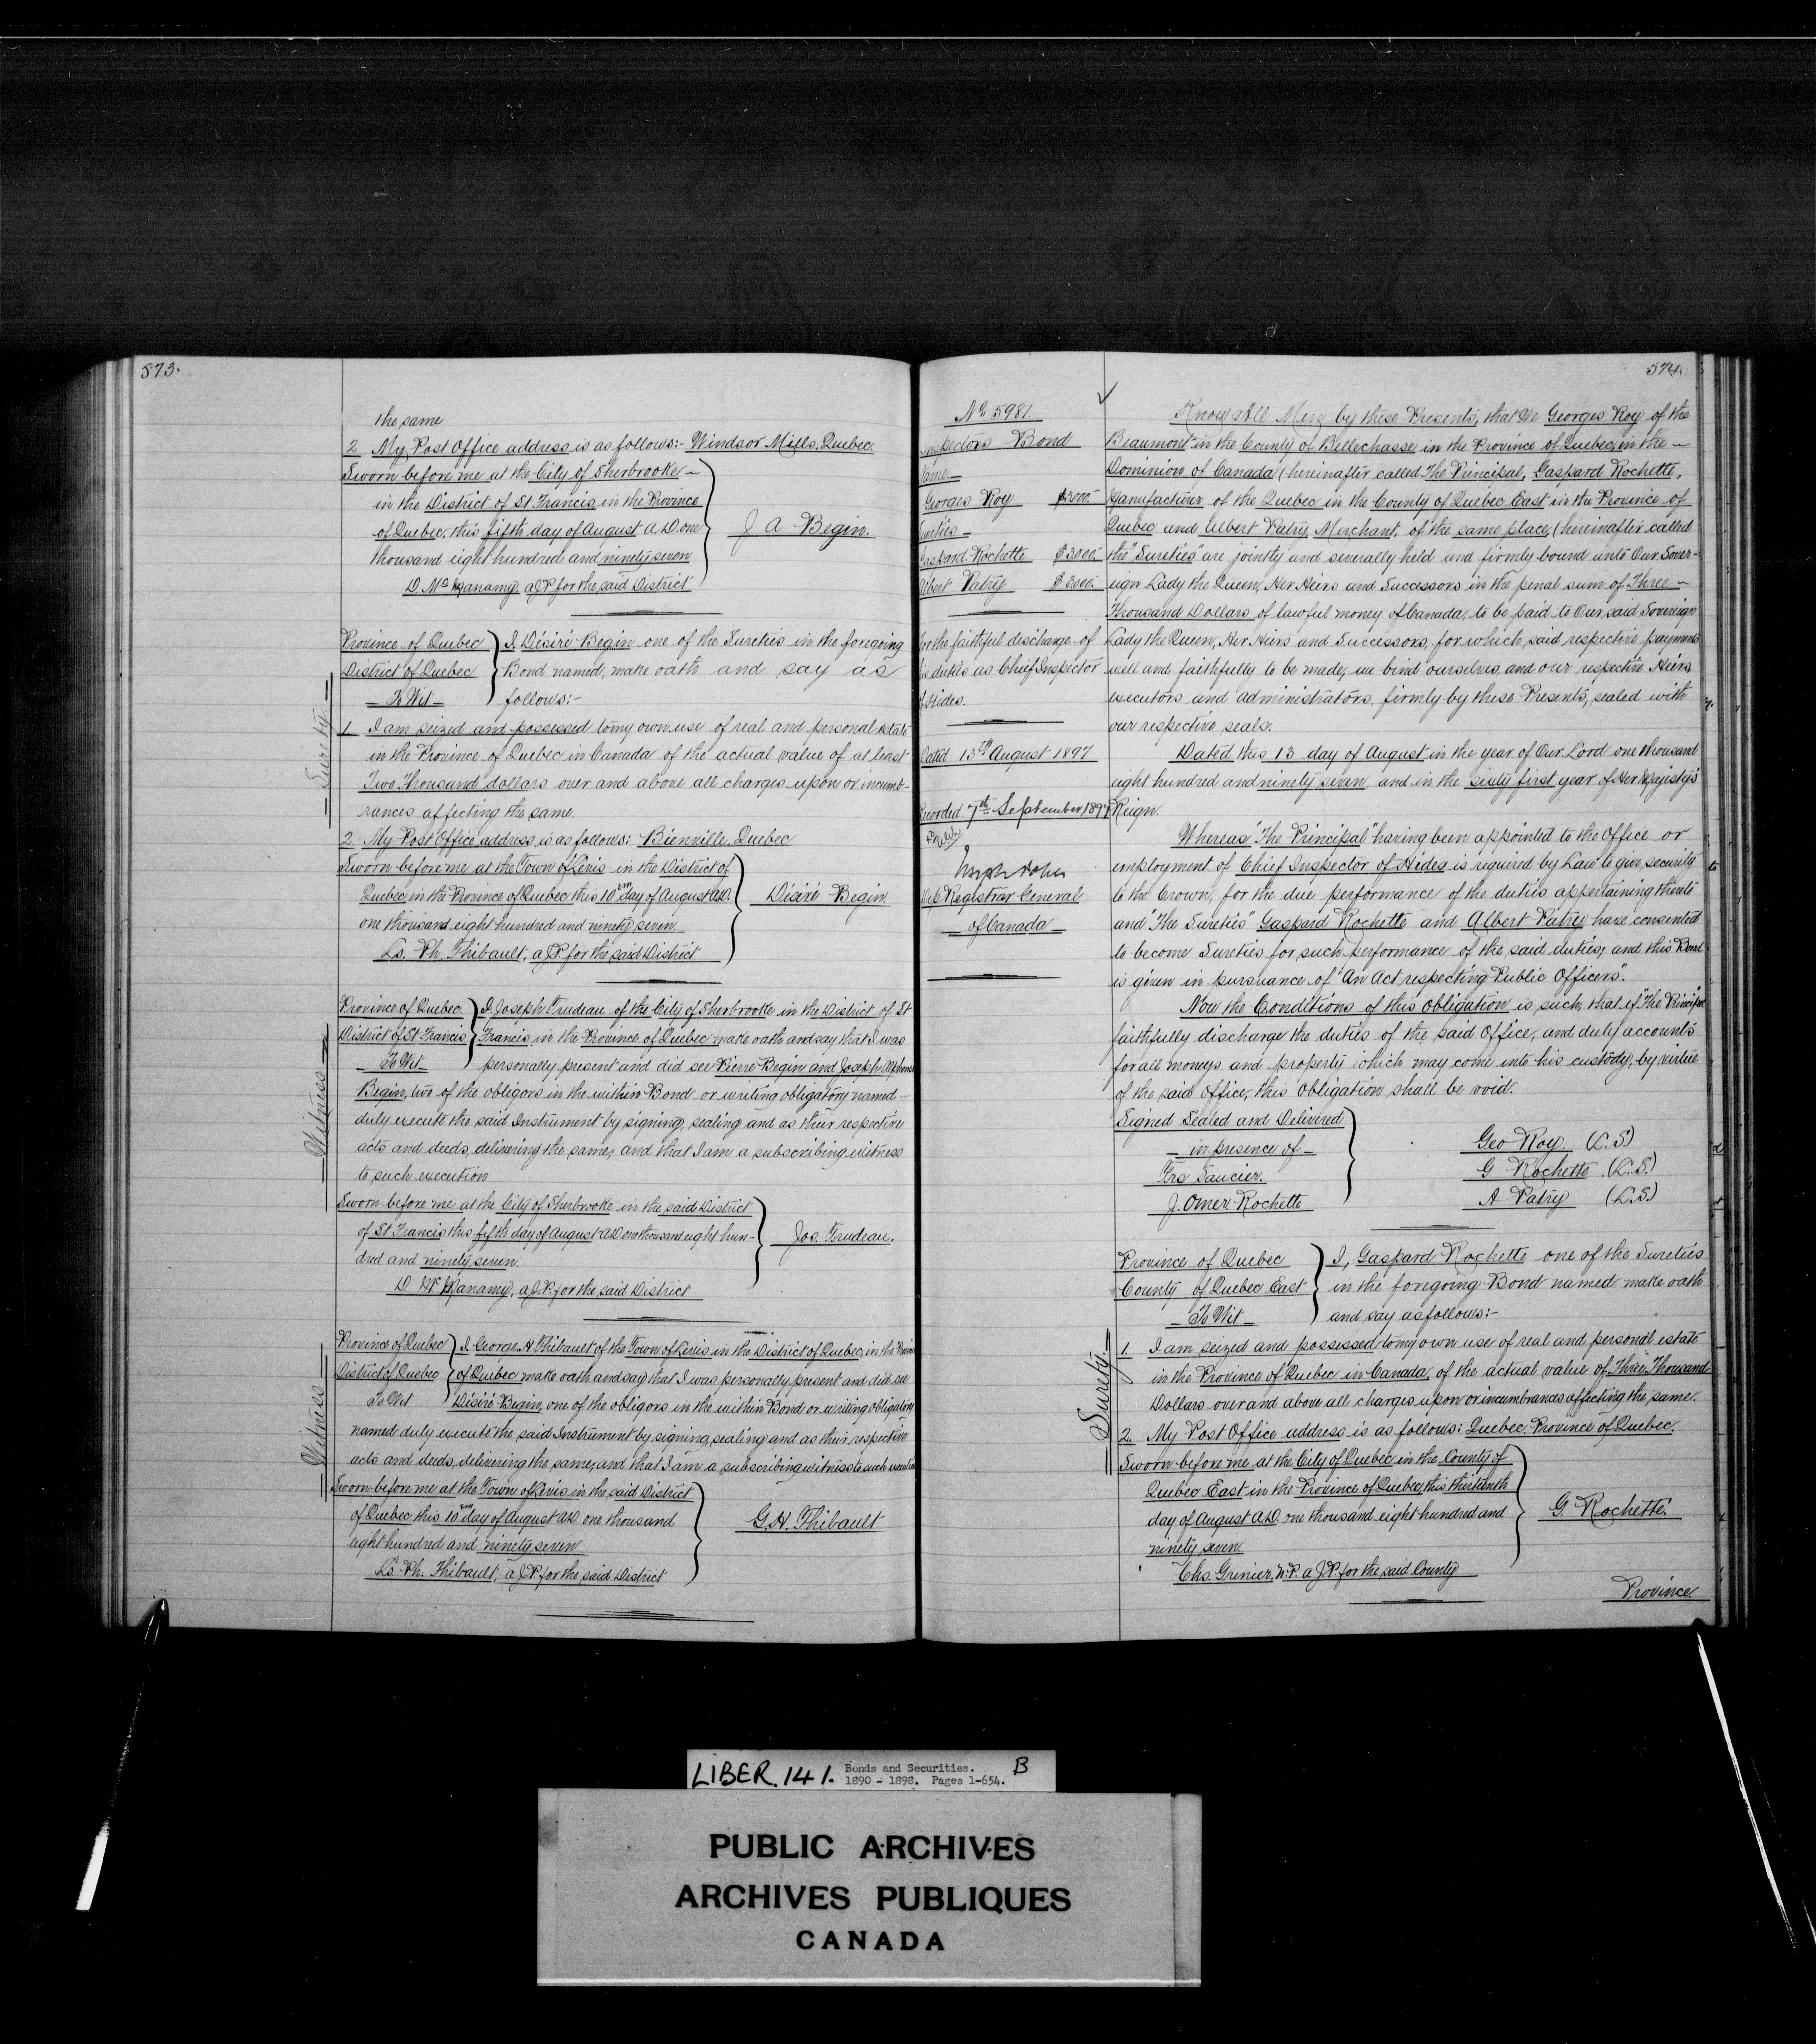 573.
the same
2. My Post Office address is as follows:- Windsor Mills, Quebec.
Sworn before me at the City of Sherbrooke
in the District of St Francis in the Province
of Quebec, this fifth day of August A.D. one
thousand eight hundred and ninety seven
D. McManamy, a J.P. for the said District
J A Begin.
Province of Quebec
District of Quebec
To Wit
I, Désiré Begin one of the Sureties in the foregoing
Bond named, make oath and say as
follows:-
Surety
1. I am seized and possessed to my own use of real and personal estate
in the Province of Quebec in Canada of the actual value of at least
Two Thousand dollars over and above all charges upon or incumb-
rances affecting the same.
2. My Post Office address is as follows: Bienville, Quebec
Sworn before me at the Town of Levis in the District of
Quebec, in the Province of Quebec this 10th day of August A.D.
one thousand eight hundred and ninety seven.
Ls. Ph. Thibault, a J.P. for the said District
Désiré Begin
Province of Quebec
District of St Francis
To Wit
I, Joseph Trudeau of the City of Sherbrooke in the District of St
Francis, in the Province of Quebec make oath and say that I was
personally present and did see Pierre Begin and Joseph Alphonse
Witness
Begin, two of the obligors in the within Bond or writing obligatory named
duly execute the said Instrument by signing, sealing and as their respective
acts and deeds, delivering the same, and that I am a subscribing witness
to such execution
Sworn before me at the City of Sherbrooke in the said District
of St Francis this fifth day of August A.D. one thousand eight hun-
dred and ninety seven.
D McManamy, a J.P. for the said District
Jos. Trudeau.
Province of Quebec
District of Quebec
To Wit
I, George H Thibault of the Town of Levis in the District of Quebec, in the Province
of Quebec make oath and say that I was personally present and did see
Désiré Begin, one of the obligors in the within Bond or writing obligatory
Witness
named duly execute the said Instrument by signing, sealing and as their respective
acts and deeds, delivering the same, and that I am a subscribing witness to such execution
Sworn before me at the Town of Levis in the said District
of Quebec this 10th day of August A.D. one thousand
eight hundred and ninety seven
Ls. Ph. Thibault, a J.P. for the said District
G.H. Thibault
574.
No. 5981.
Inspectors Bond
Name.
Georges Roy $3000.
Sureties
Gaspard Rochette $3000.
Albert Patry $3000.
for the faithful discharge of
his duties as Chief Inspector
of Hides.
Dated 13th August 1897
Recorded 7th September, 1897
Dep Registrar General
of Canada
Know All Men by these Presents, that We Georges Roy of the
Beaumont in the County of Bellechasse in the Province of Quebec, in the
Dominion of Canada (hereinafter called The Principal, Gaspard Rochette,
Manufacturer of the Quebec in the County of Quebec East in the Province of
Quebec and Albert Patry, Merchant, of the same place, (hereinafter called
the "Sureties" are jointly and severally held and firmly bound unto Our Sover-
eign Lady the Queen, Her Heirs and Successors in the penal sum of Three
Thousand Dollars of lawful money of Canada, to be paid to Our said Sovereign
Lady the Queen, Her Heirs and Successors, for which said respective payments
well and faithfully to be made, we bind ourselves, and our respective Heirs,
executors and administrators, firmly by these Presents, sealed with
our respective seals.
Dated this 13 day of August in the year of Our Lord one thousand
eight hundred and ninety seven and in the sixty first year of Her Majesty's
Reign.
Whereas "The Principal" having been appointed to the Office or
employment of Chief Inspector of Hides is required by Law to give security
to the Crown, for the due performance of the duties appertaining thereto
and "The Sureties" Gaspard Rochette and Albert Patry, have consented
to become Sureties for such performance of the said duties, and this Bond
is given in pursuance of "An Act respecting Public Officers".
Now the Conditions of this obligation is such, that if "The Principal"
faithfully discharge the duties of the said Office, and duly accounts
for all moneys and property which may come into his custody, by virtue
of the said Office, this obligation shall be void.
Signed Sealed and Delivered
in presence of
Frs Saucier.
J. Omer Rochette
Geo Roy. (L.S.)
G Rochette. (L.S.)
A Patry (L.S.)
Province of Quebec
County of Quebec East
To Wit
I, Gaspard Rochette one of the Sureties
in the foregoing Bond named make oath
and say as follows:-
Surety.
1. I am seized and possessed to my own use of real and personal estate
in the Province of Quebec in Canada, of the actual value of Three Thousand
Dollars over and above all charges upon or incumbrances affecting the same.
2. My Post Office address is as follows: Quebec. Province of Quebec.
Sworn before me at the City of Quebec, in the County of
Quebec East in the Province of Quebec, this thirteenth
day of August A.D. one thousand eight hundred and
ninety seven.
Chs. Grenier, N.P. a J.P. for the said County
G. Rochette.
Province
LIBER. 141. Bonds and Securities. B
1890 - 1898. Pages 1-654.
PUBLIC ARCHIVES
ARCHIVES PUBLIQUES
CANADA